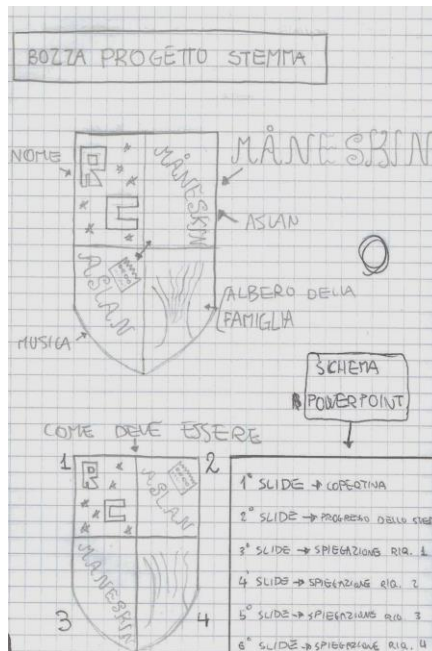 BOZZA PROGETTO STEMMA
NOME
R
C
MÅNESKIN
MÅNESKIN
ASLAN
ASLAN
ALBERO DELLA
FAMIGLIA
MUSICA
SCHEMA
POWERPOINT
COME DEVE ESSERE
1
2
R
C
ASLAN
MÅNESKIN
3
4
1° SLIDE → COPERTINA
2° SLIDE → PROGRESSO DELLO STEM
3° SLIDE → SPIEGAZIONE RIQ. 1
4° SLIDE → SPIEGAZIONE RIQ. 2
5° SLIDE → SPIEGAZIONE RIQ. 3
6° SLIDE → SPIEGAZIONE RIQ. 4